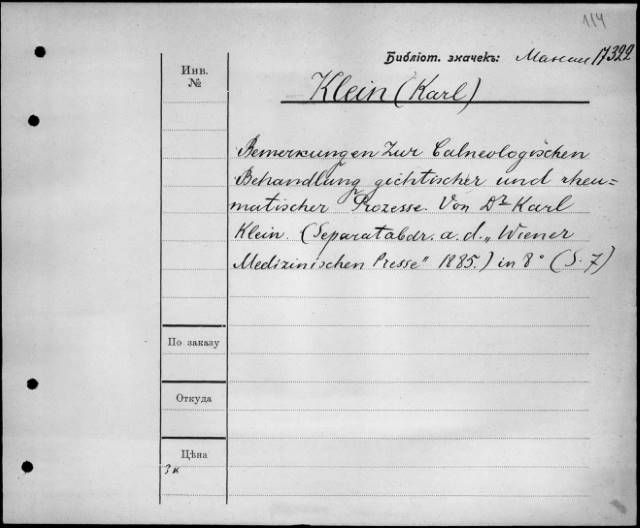 114
Библіот. значекъ: 17322
Инв.
№
Klein (Karl)
Bemerkungen zur Balneologischen
Behandlung gichtischer und rheu=
matischer Prozesse. Von Dr Karl
Klein. (Separatabdr. a. d. „Wiener
Medizinischen Presse" 1885.) in 8° (S. 7)
По заказу
Откуда
Цѣна
3 к